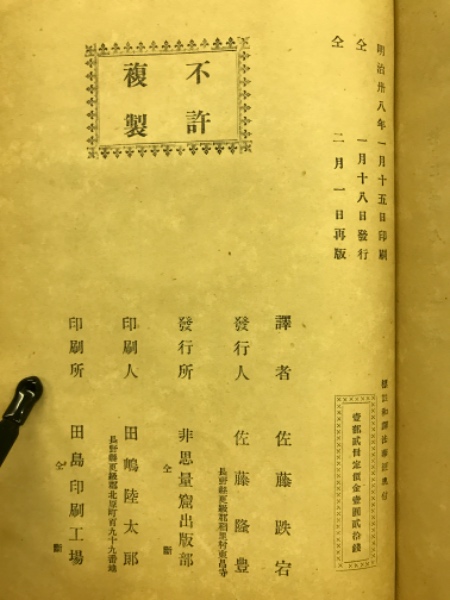 明治卅八年一月十五日印刷
仝 一月十八日發行
仝 二月一日再版
不許
複製
壹部貳冊定價金壹圓貳拾錢
譯者 佐藤跌宕
發行人 佐藤隆豊
長野縣更級郡 村東昌寺
發行所 非思量窟出版部
仝
印刷人 田嶋陸太郎
長野縣更級郡北原町百九十九番地
印刷所 田島印刷工場
仝